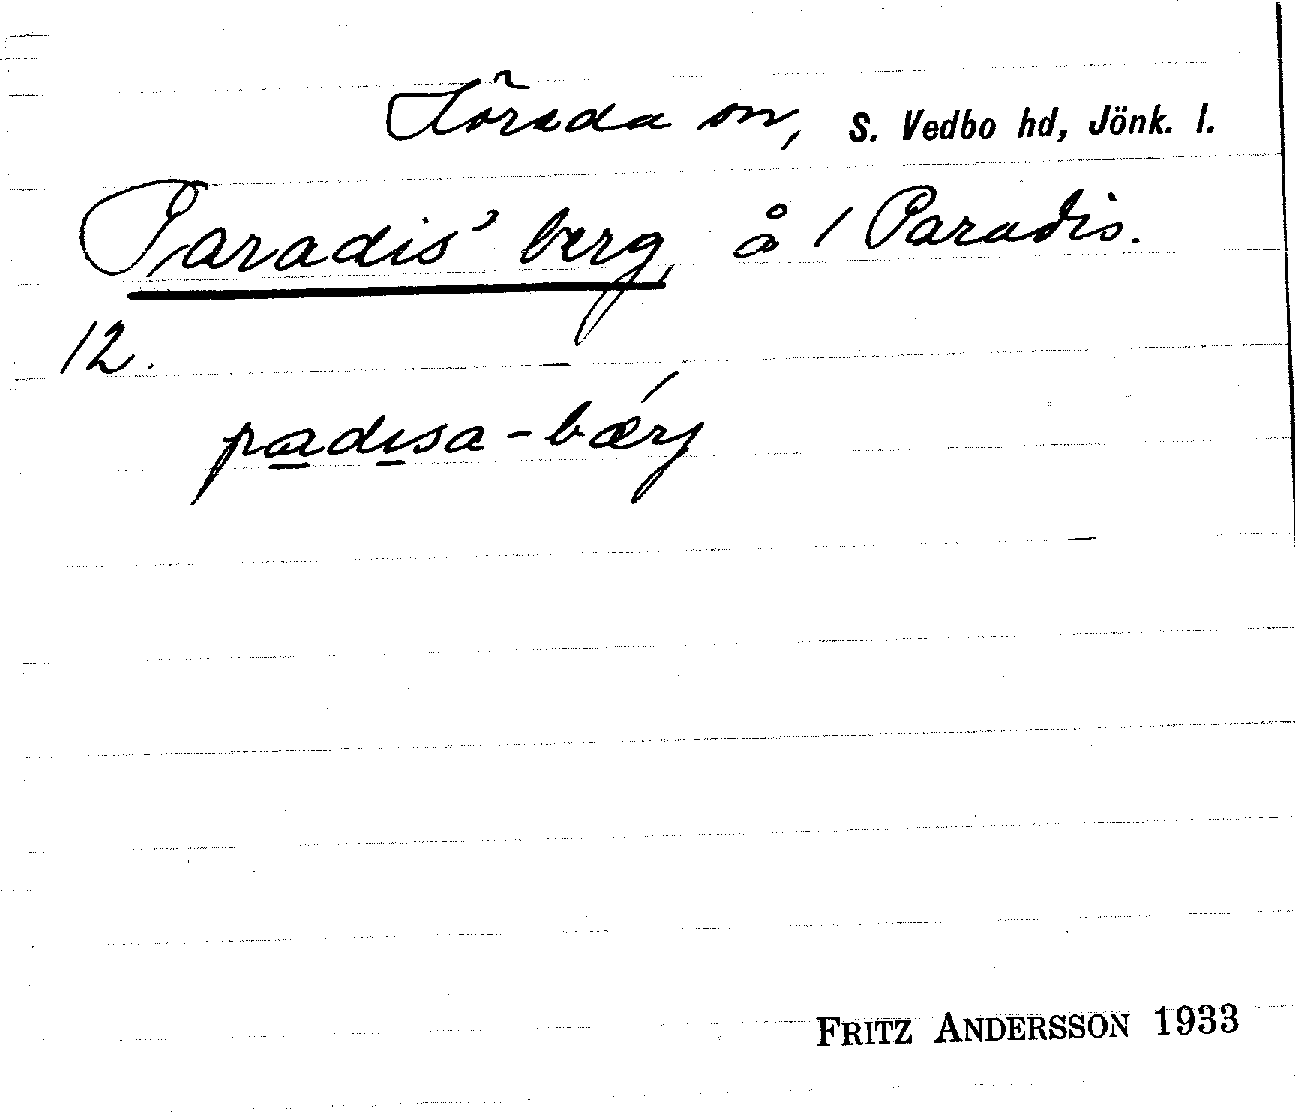 Hörеda sn, S. Vedbo hd, Jönk. l.
Paradis' berg, å 1 Paradis.
12.
padisa-bærj
FRITZ ANDERSSON 1933